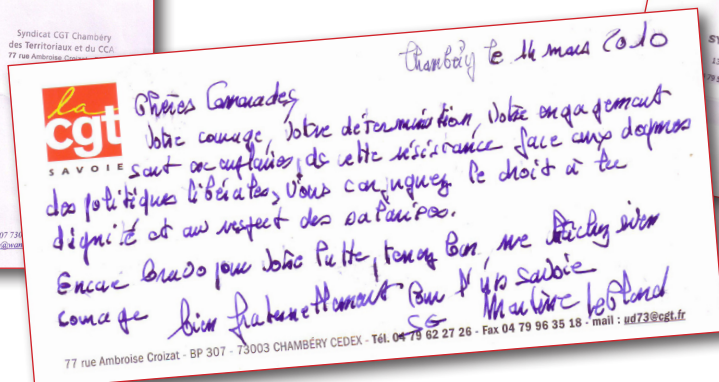 Syndicat CGT Chambéry
des Territoriaux et du CCA
77 rue Ambroise Croizat
la
cgt
SAVOIE
Chambéry le 14 mars 2010
Chères Camarades,
Votre courage, Votre détermination, Votre engagement
sont exemplaires, de cette résistance face aux dogmes
des politiques libérales, Vous conjuguez le droit à la
dignité et au respect des salariées.
Encore bravo pour Votre lutte, tenez bon, ne lachez rien
courage bien fraternellement Pour l'UD Savoie
SG Martine Leblond
77 rue Ambroise Croizat - BP 307 - 73003 CHAMBÉRY CEDEX - Tél. 04 79 62 27 26 - Fax 04 79 96 35 18 - mail : ud73@cgt.fr
07 730
@wan